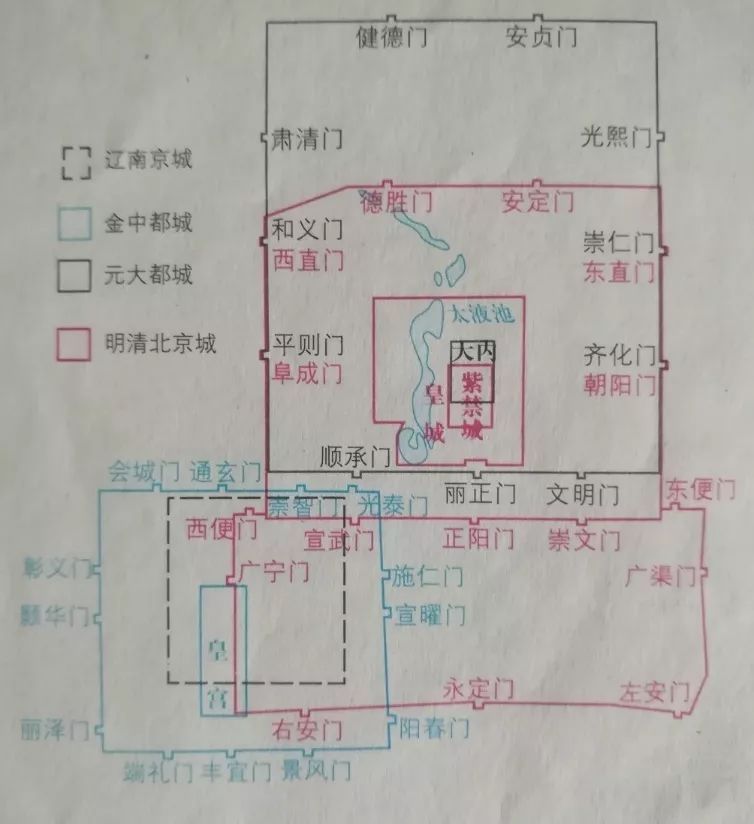 健德门
安贞门
肃清门
光熙门
辽南京城
金中都城
元大都城
明清北京城
德胜门
安定门
和义门
西直门
崇仁门
东直门
太液池
大内
平则门
阜成门
齐化门
朝阳门
紫禁城
皇城
顺承门
丽正门
文明门
会城门
通玄门
崇智门
光泰门
东便门
西便门
宣武门
正阳门
崇文门
彰义门
广宁门
施仁门
广渠门
颢华门
宣曜门
皇宫
永定门
左安门
丽泽门
右安门
阳春门
端礼门
丰宜门
景风门